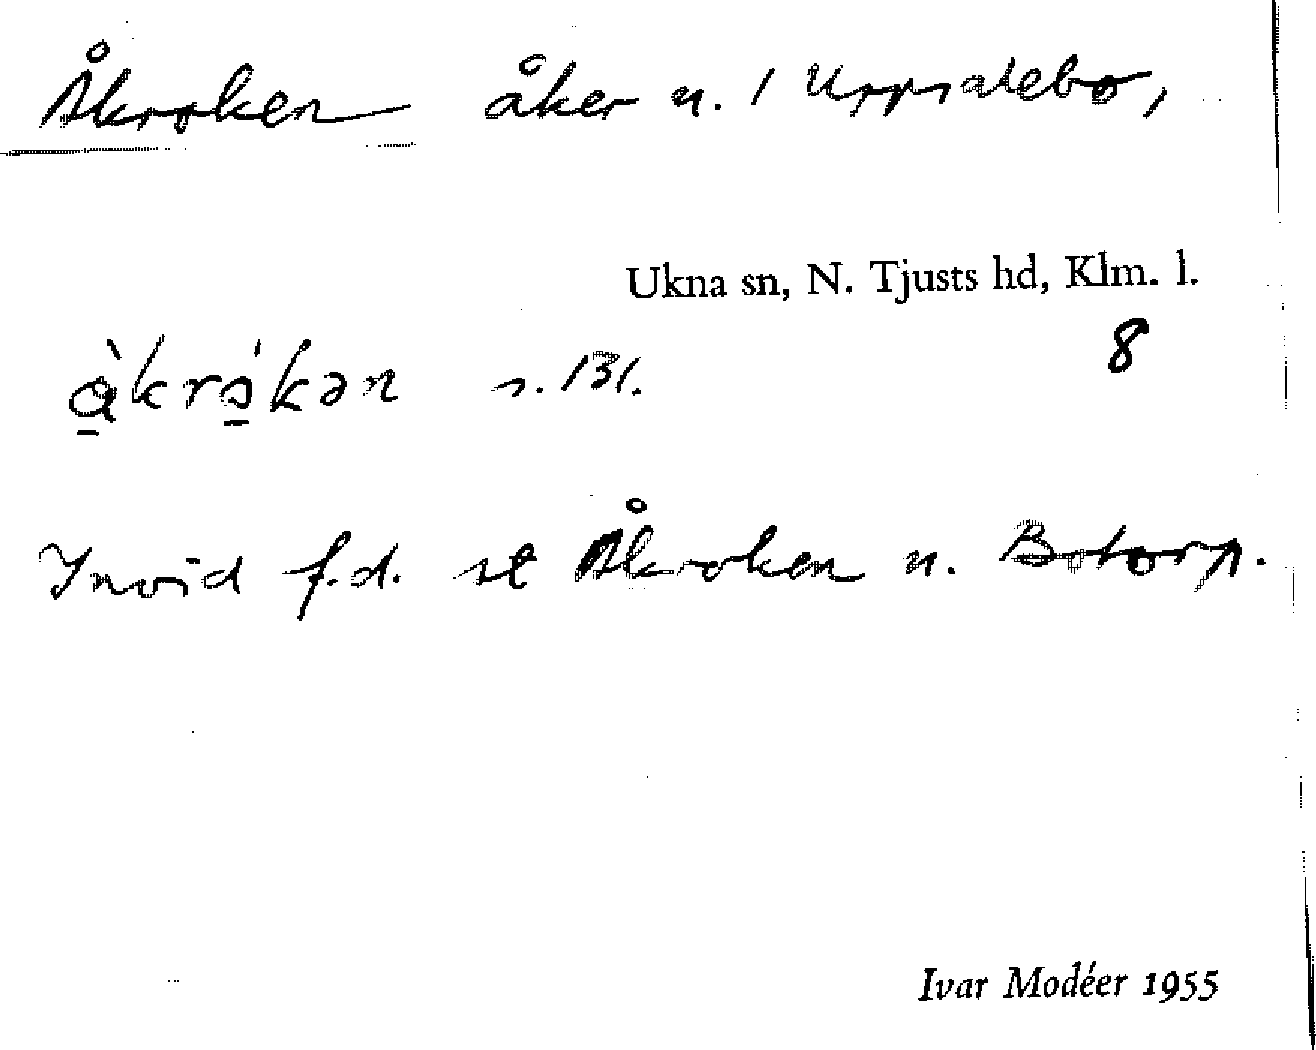 Åkroken åker u. / Uppsalebo,
Ukna sn, N. Tjusts hd, Klm. l.
8
àkrókən s. 131.
Invid f.d. st Åkroken u. Botorp.
Ivar Modéer 1955